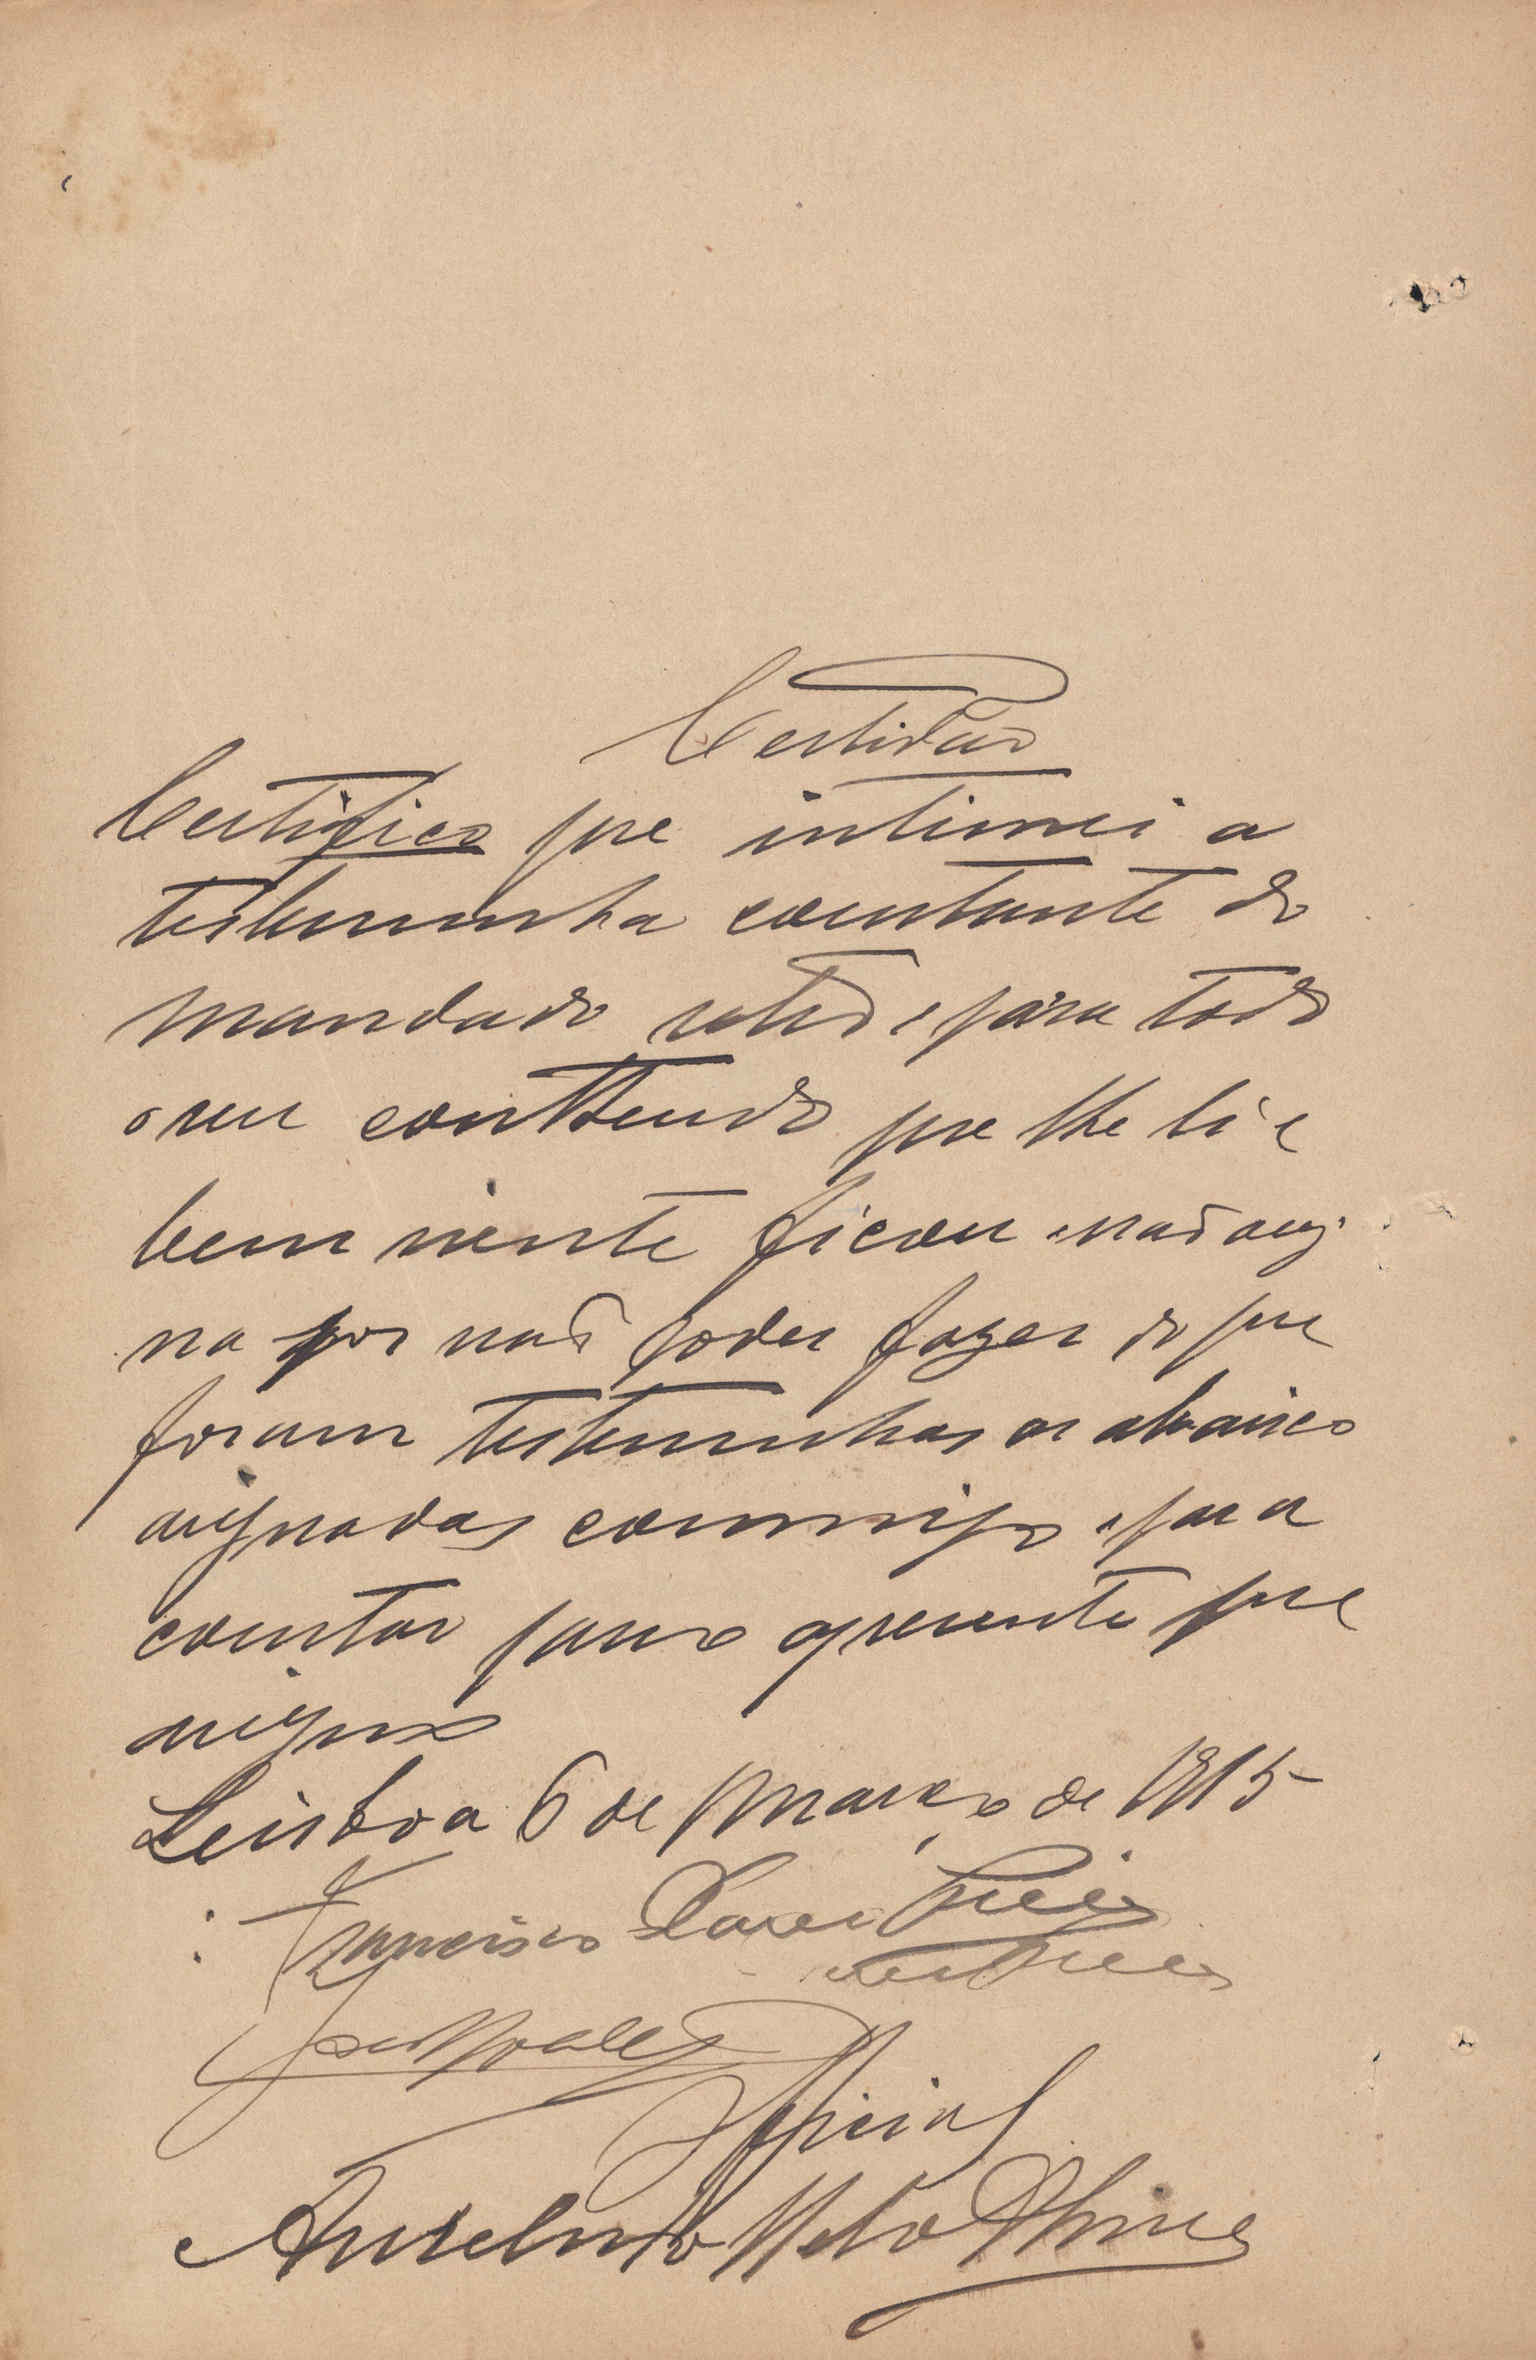 Certidão
Certifico que intimei a
testemunha constante do
mandado retro e para todo
o seu conttendo que lhe li e
bem siente ficou e não asig
na por não poder fazer do que
foram testemunhas os abaixo
asignadas commigo e para
constar passo a presente que
asigno
Leisboa 6 de Março de 1915
Francisco Xavier
José
Official
Anselmo Neto